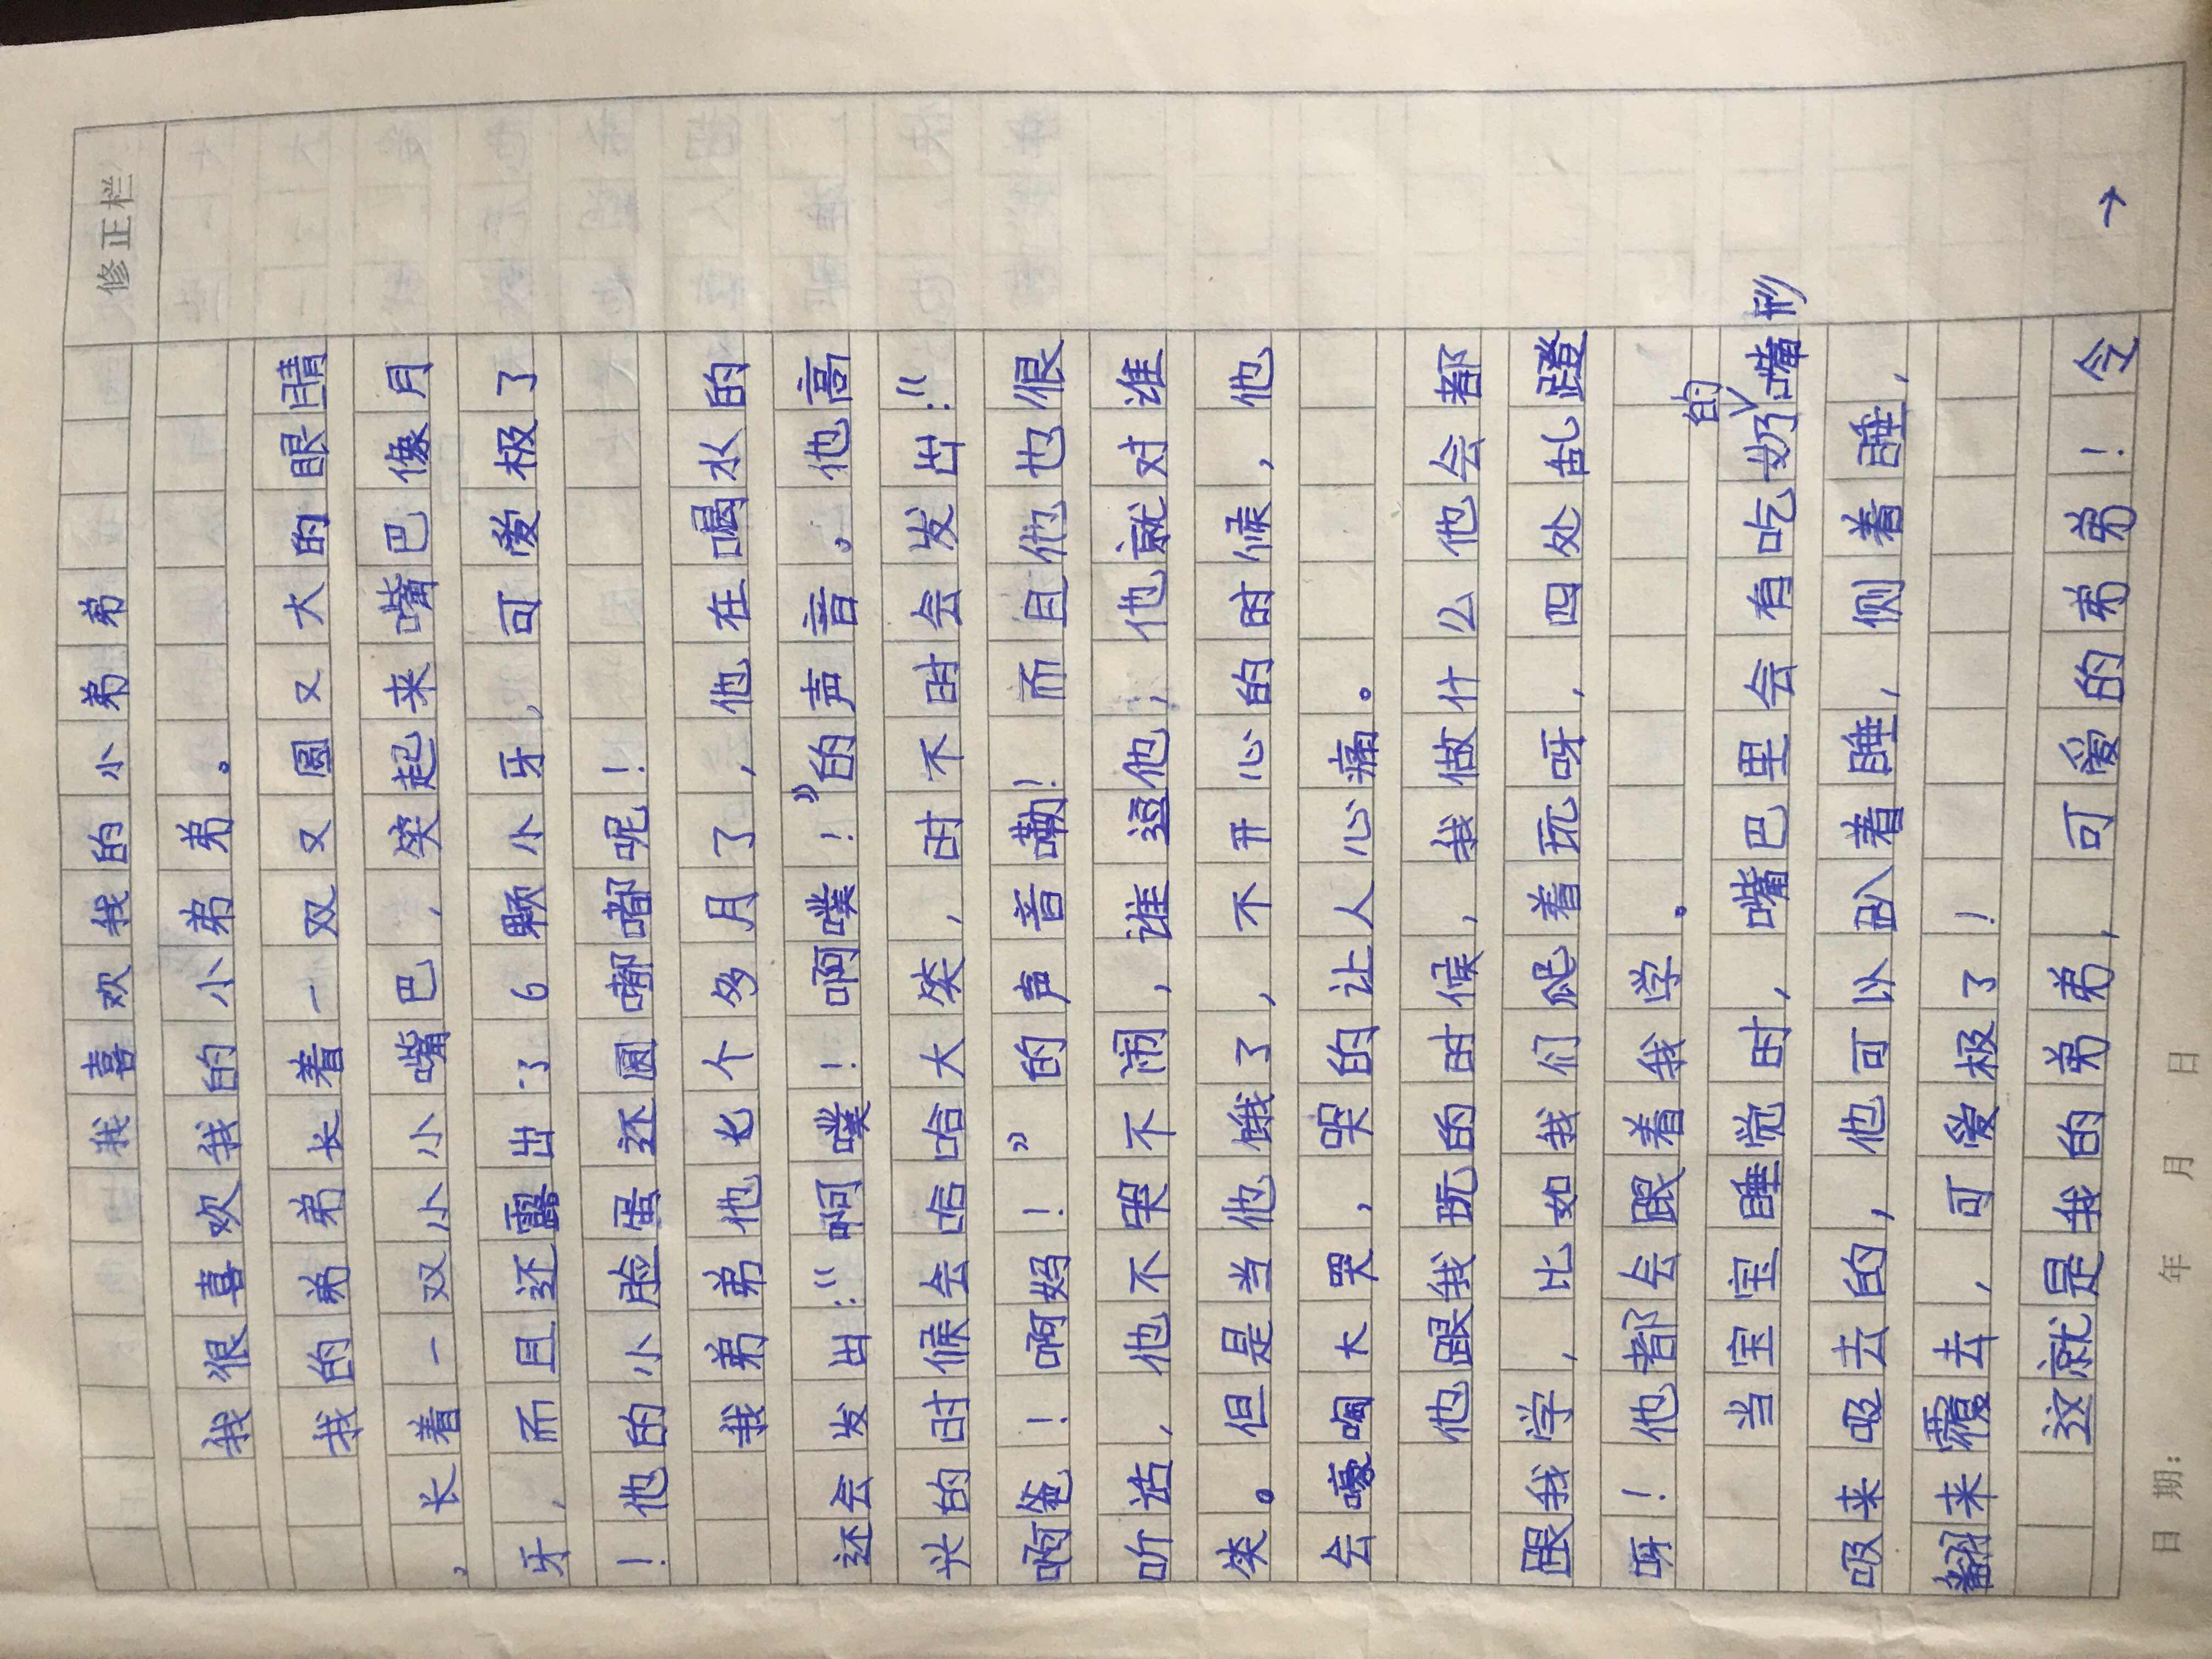 修正栏
我喜欢我的小弟弟
我很喜欢我的小弟弟。
我的弟弟长着一双又圆又大的眼睛
，长着一双小小嘴巴，笑起来嘴巴像月
牙，而且还露出了6颗小牙，可爱极了
！他的小脸蛋还圆嘟嘟呢！
我弟弟他七个多月了，他在喝水的
还会发出：“啊噗！啊噗！”的声音。他高
兴的时候会哈哈大笑，时不时会发出：“
啊爸！啊妈！”的声音嘞！而且他也很
听话，他不哭不闹，谁逗他，他就对谁
笑。但是当他饿了，不开心的时候，他
会嚎啕大哭，哭的让人心痛。
他跟我玩的时候，我做什么他会都
跟我学，比如我们爬着玩呀，四处乱蹬
呀！他都会跟着我学。
当宝宝睡觉时，嘴巴里会有吃奶的嘴形
吸来吸去的，他可以趴着睡，侧着睡，
翻来覆去，可爱极了！
这就是我的弟弟，可爱的弟弟！令
→
日期： 年 月 日